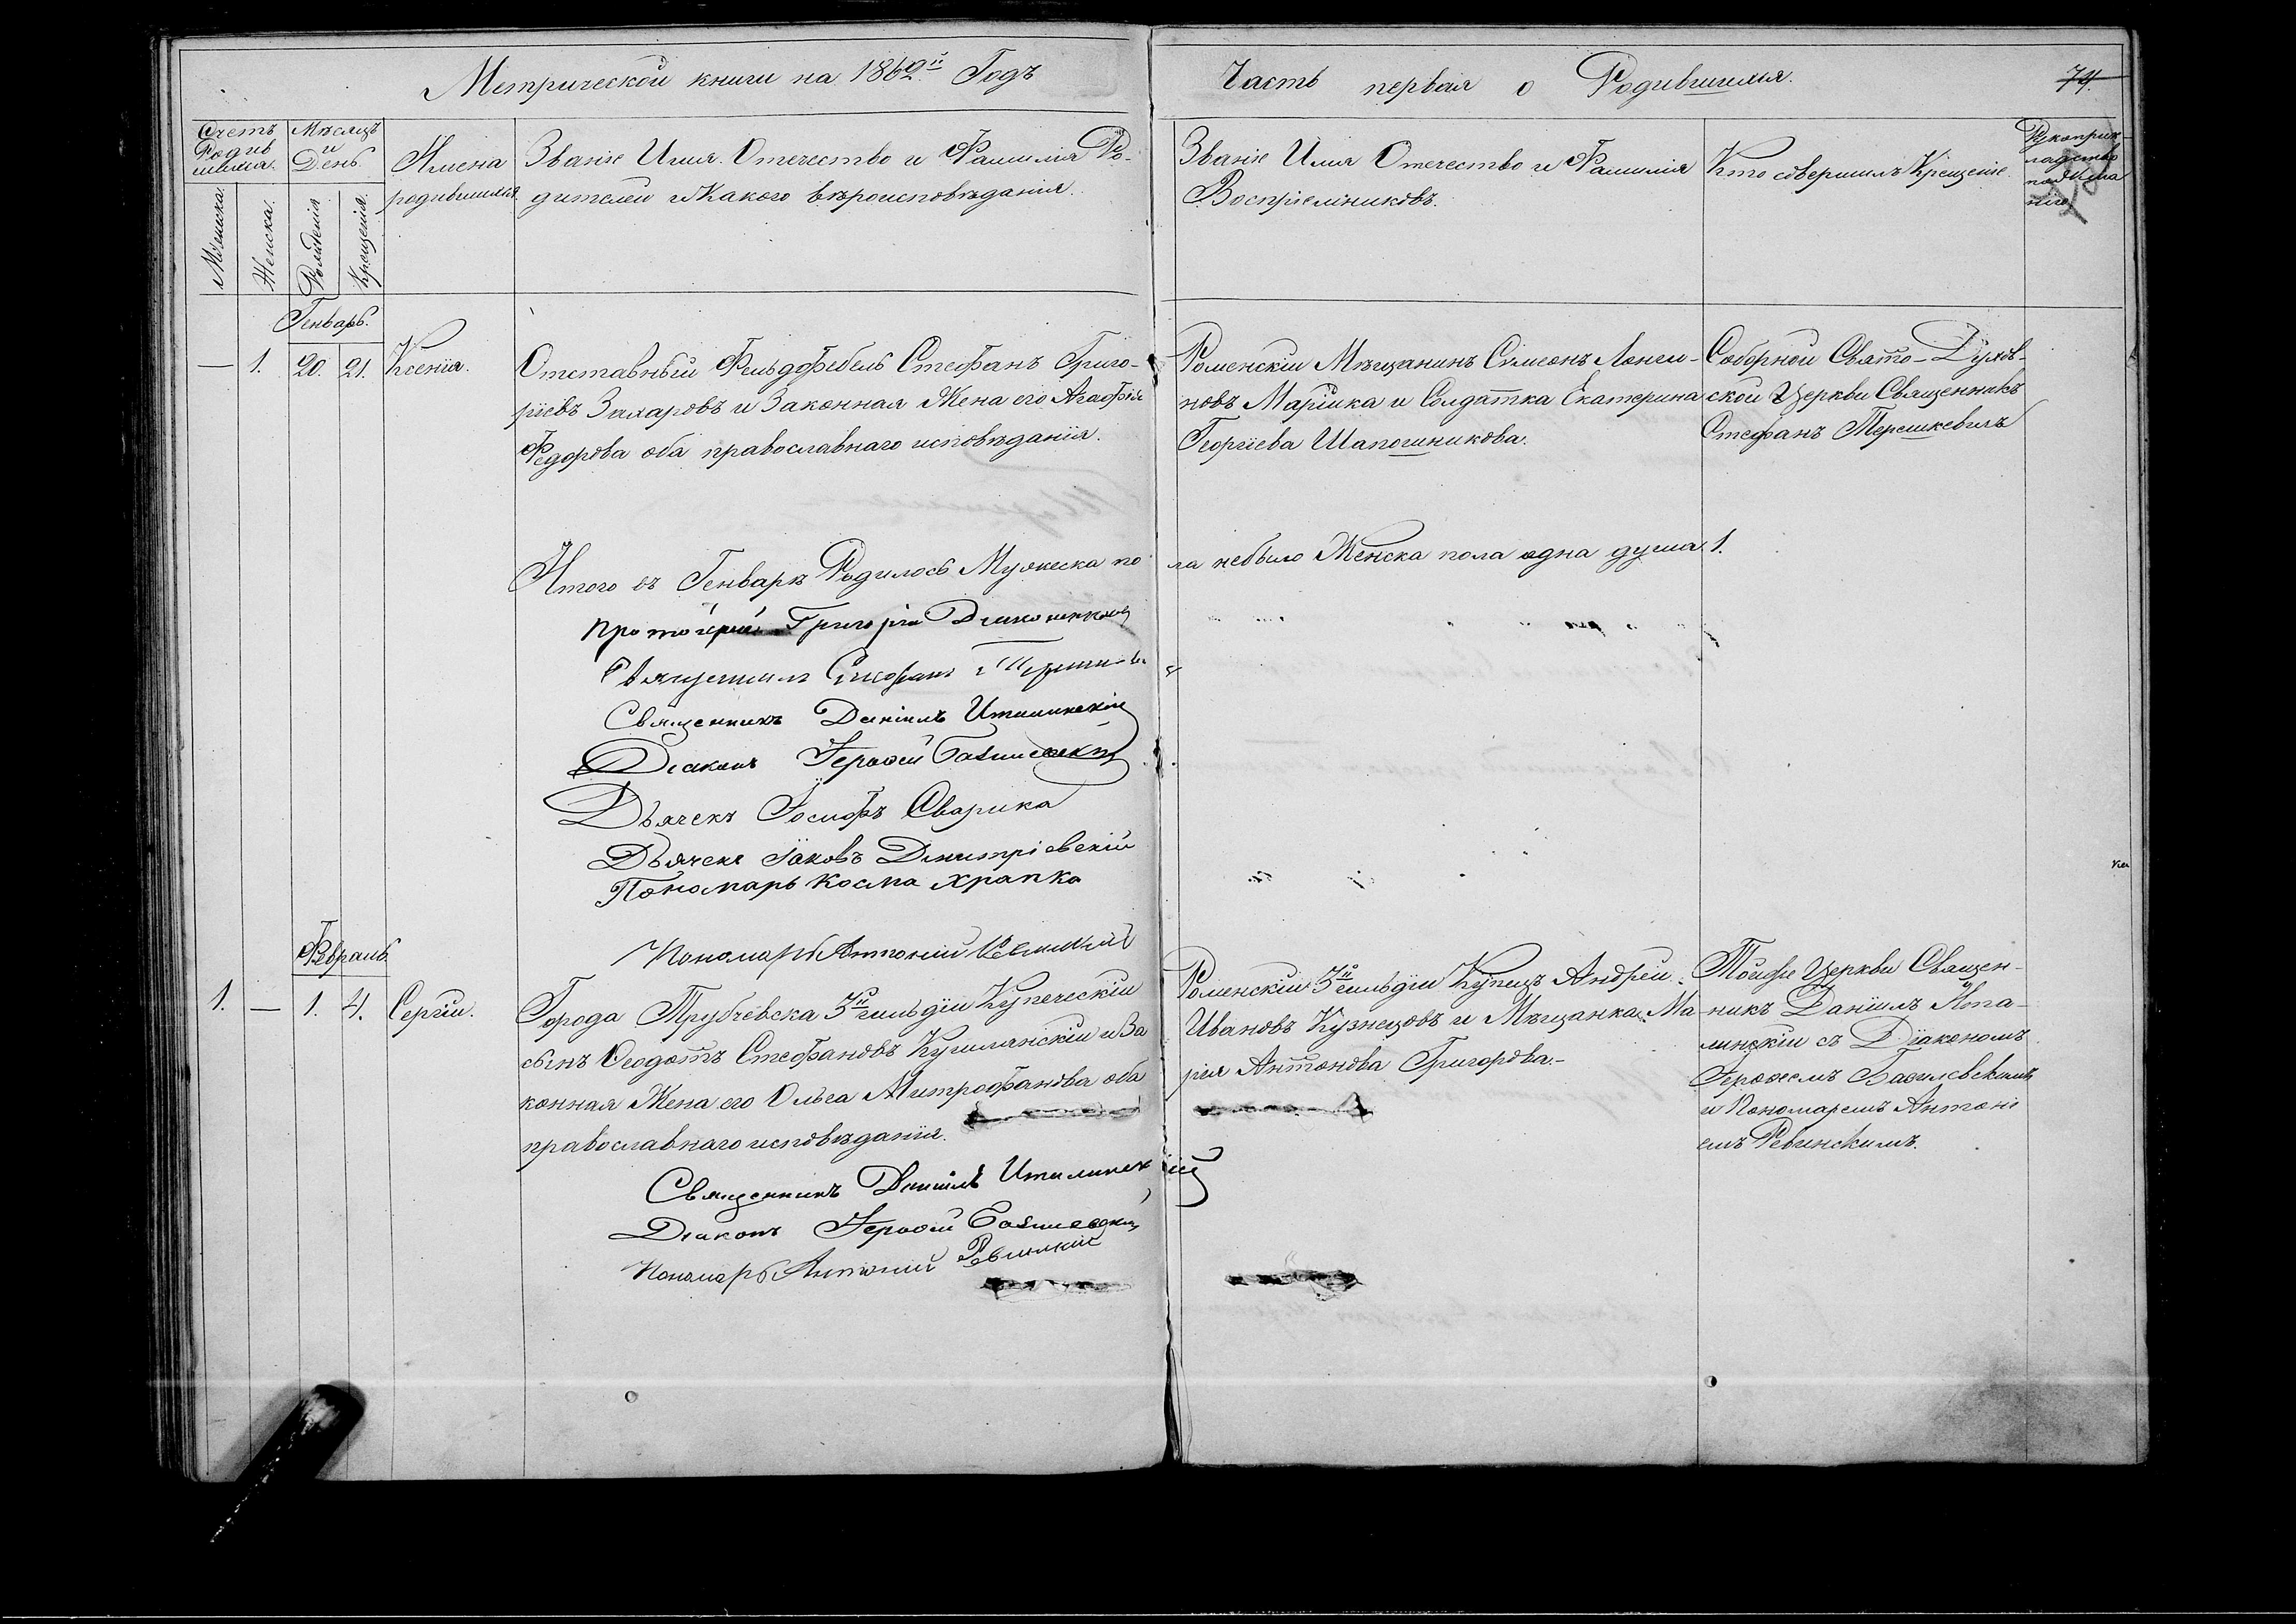 Метрической книги на 1862й Годъ
Часть первая о Родившихся.
74.
Счетъ
Родив
шихся.
Мѣсяцъ
и
День.
Имена
родившихся
Званіе Имя. Отечество и Фамилія Ро-
дителей и Какого вѣроисповѣданія.
Званіе Имя Отечество и Фамилія
Воспріемниковъ.
Кто совершилъ Крещеніе.
Рукоприк-
ладство
Мужеска.
Женска.
Рожденія
Крещенія.
Генварь.
—
1.
20.
21.
Ксенія.
Отставный Фельдфебель Стефанъ Григо-
ріевъ Захаровъ и Законная Жена его Агафія
Федорова оба православнаго исповѣданія.
Роменскій Мѣщанинъ Симеонъ Лонги-
новъ Маршка и Солдатка Екатерина
Георгіева Шапошникова.
Соборной Свято-Духов-
ской Церкви Священникъ
Стефанъ Терешкевичъ
Итого въ Генварѣ Родилось Мужеска по
ла небыло Женска пола одна душа 1.
Протоіерей Григорій
Священникъ Стефанъ
Священникъ Даніилъ Италинскій
Діаконъ Іерофей Базилевскій
Дьячекъ Іосифъ Сварика
Дьячекъ Іаковъ Дмитріевскій
Пономарь Косма Храпко
Пономарь Антоній Ревинскій
Февраль
1.
—
1.
4.
Сергій.
Города Трубчевска 3й гильдіи Купеческій
сынъ Феодотъ Стефановъ и За
конная Жена его Ольга Митрофанова оба
православнаго исповѣданія.
Роменскій 3й гильдіи Купецъ Андрей
Ивановъ Кузнецовъ и Мѣщанка Ма
рія Антонова Григорова.-
Тойже Церкви Священ-
никъ Даніилъ Ита-
линскій съ Діакономъ
Іерофеемъ Базилевскимъ
и Пономаремъ Антоні
емъ Ревинскимъ.
Священникъ Даніилъ Италинскій
Діаконъ Іерофей Базилевскій
Пономарь Антоній Ревинскій